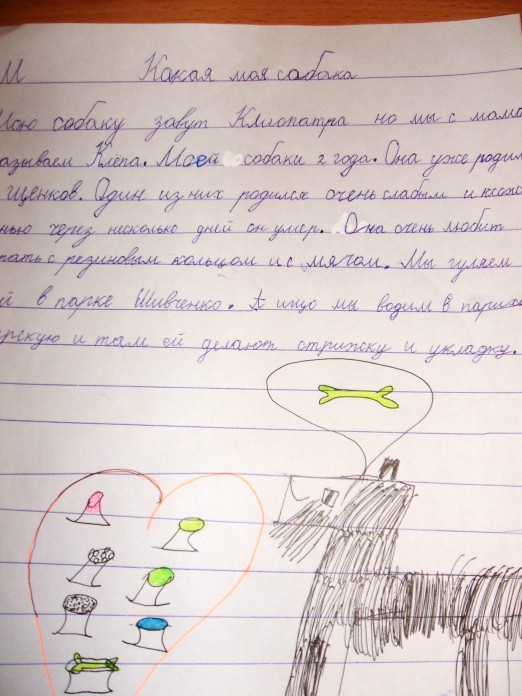 М Какая моя сабака
Мою собаку завут Клиопатра но мы с мамо
азываем Клёпа. Моей собаки 2 года. Она уже родил
щенков. Один из них родился очень слабым и
нью через несколько дней он умер. Она очень любит
рать с резиновым кольцом и с мячом. Мы гуляем
ей в парке Шивченко. А ищо мы водим в парик
ерскую и там ей делают стрижку и укладку.